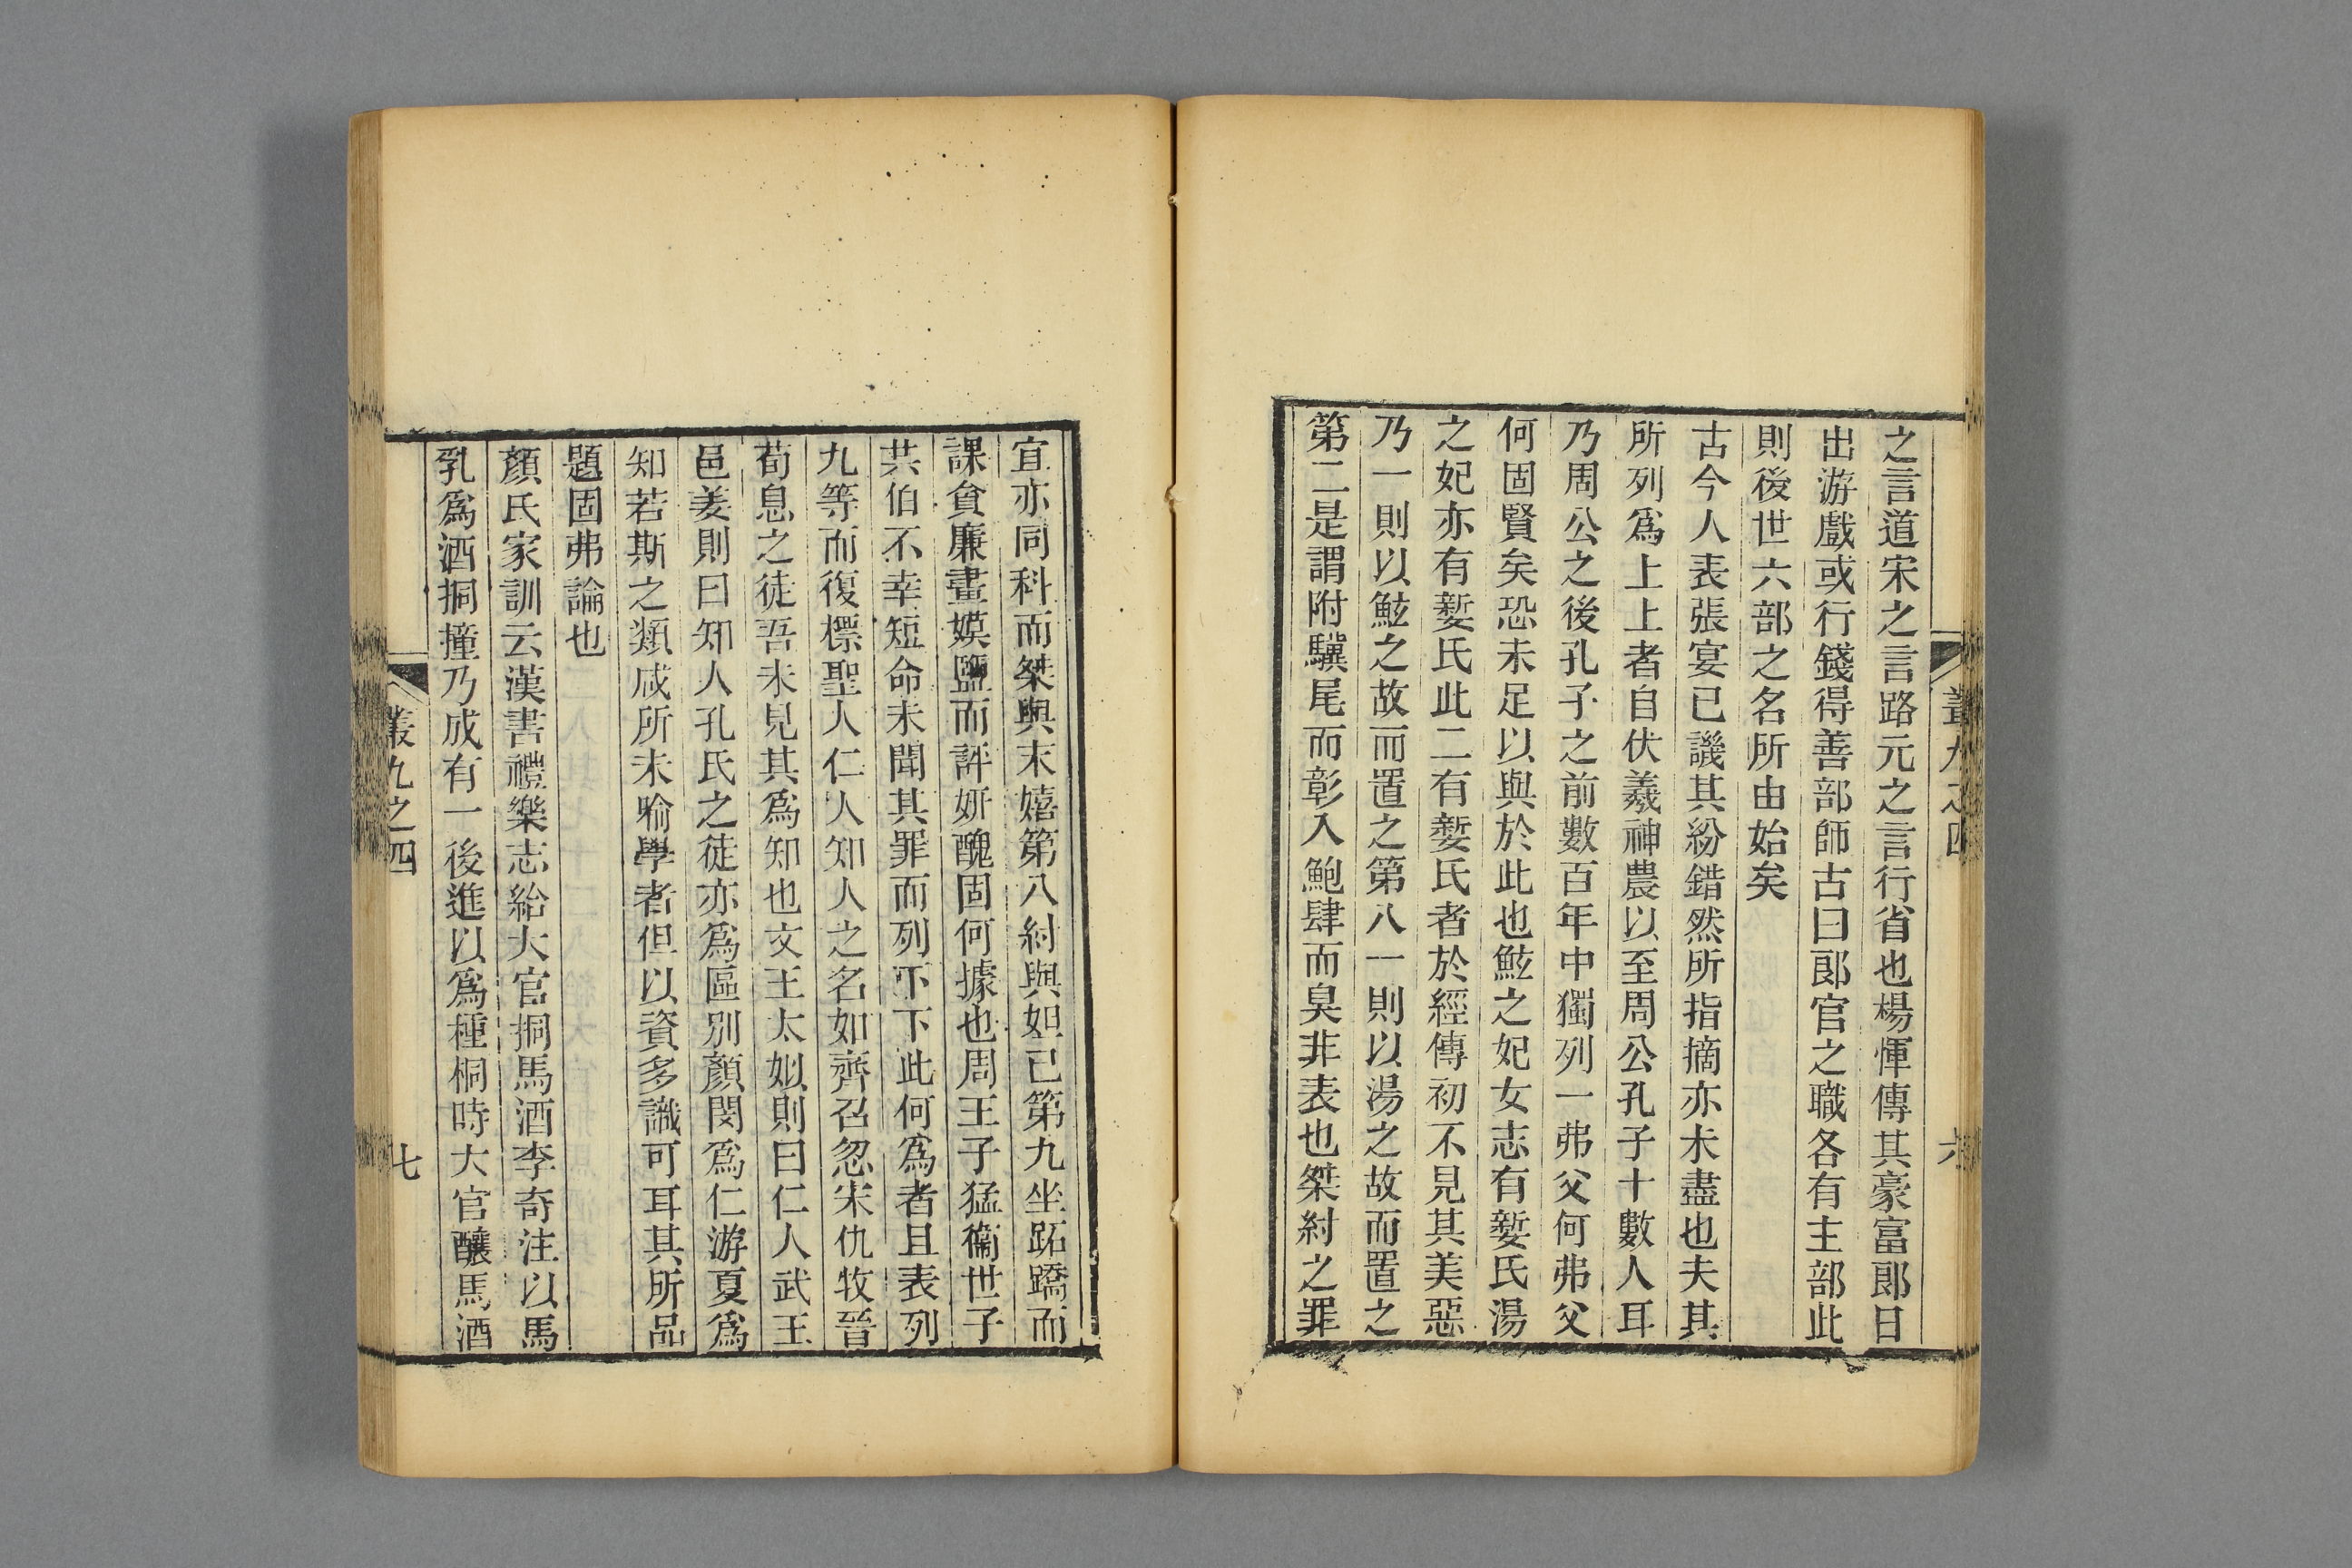 之言道宋之言路元之言行省也楊惲傳其豪富郎日
出游戲或行錢得善部師古曰郎官之職各有主部此
則後世六部之名所由始矣
古今人表張宴已譏其紛錯然所指摘亦未盡也夫其
所列爲上上者自伏羲神農以至周公孔子十數人耳
乃周公之後孔子之前數百年中獨列一弗父何弗父
何固賢矣恐未足以與於此也鮌之妃女志有㜪氏湯
之妃亦有㜪氏此二有㜪氏者於經傳初不見其美惡
乃一則以鮌之故而置之第八一則以湯之故而置之
第二是謂附驥尾而彰入鮑肆而臭非表也桀紂之罪
宜亦同科而桀與末嬉第八紂與妲己第九坐跖蹻而
課貪廉畫嫫鹽而評妍醜固何據也周王子猛衞世子
共伯不幸短命未聞其罪而列下下此何爲者且表列
九等而復標聖人仁人知人之名如齊召忽宋仇牧晉
荀息之徒吾未見其爲知也文王太姒則曰仁人武王
邑姜則曰知人孔氏之徒亦爲區別顏閔爲仁游夏爲
知若斯之類咸所未喻學者但以資多識可耳其所品
題固弗論也
顏氏家訓云漢書禮樂志給大官挏馬酒李奇注以馬
乳爲酒挏撞乃成有一後進以爲種桐時大官釀馬酒
叢九之四
七